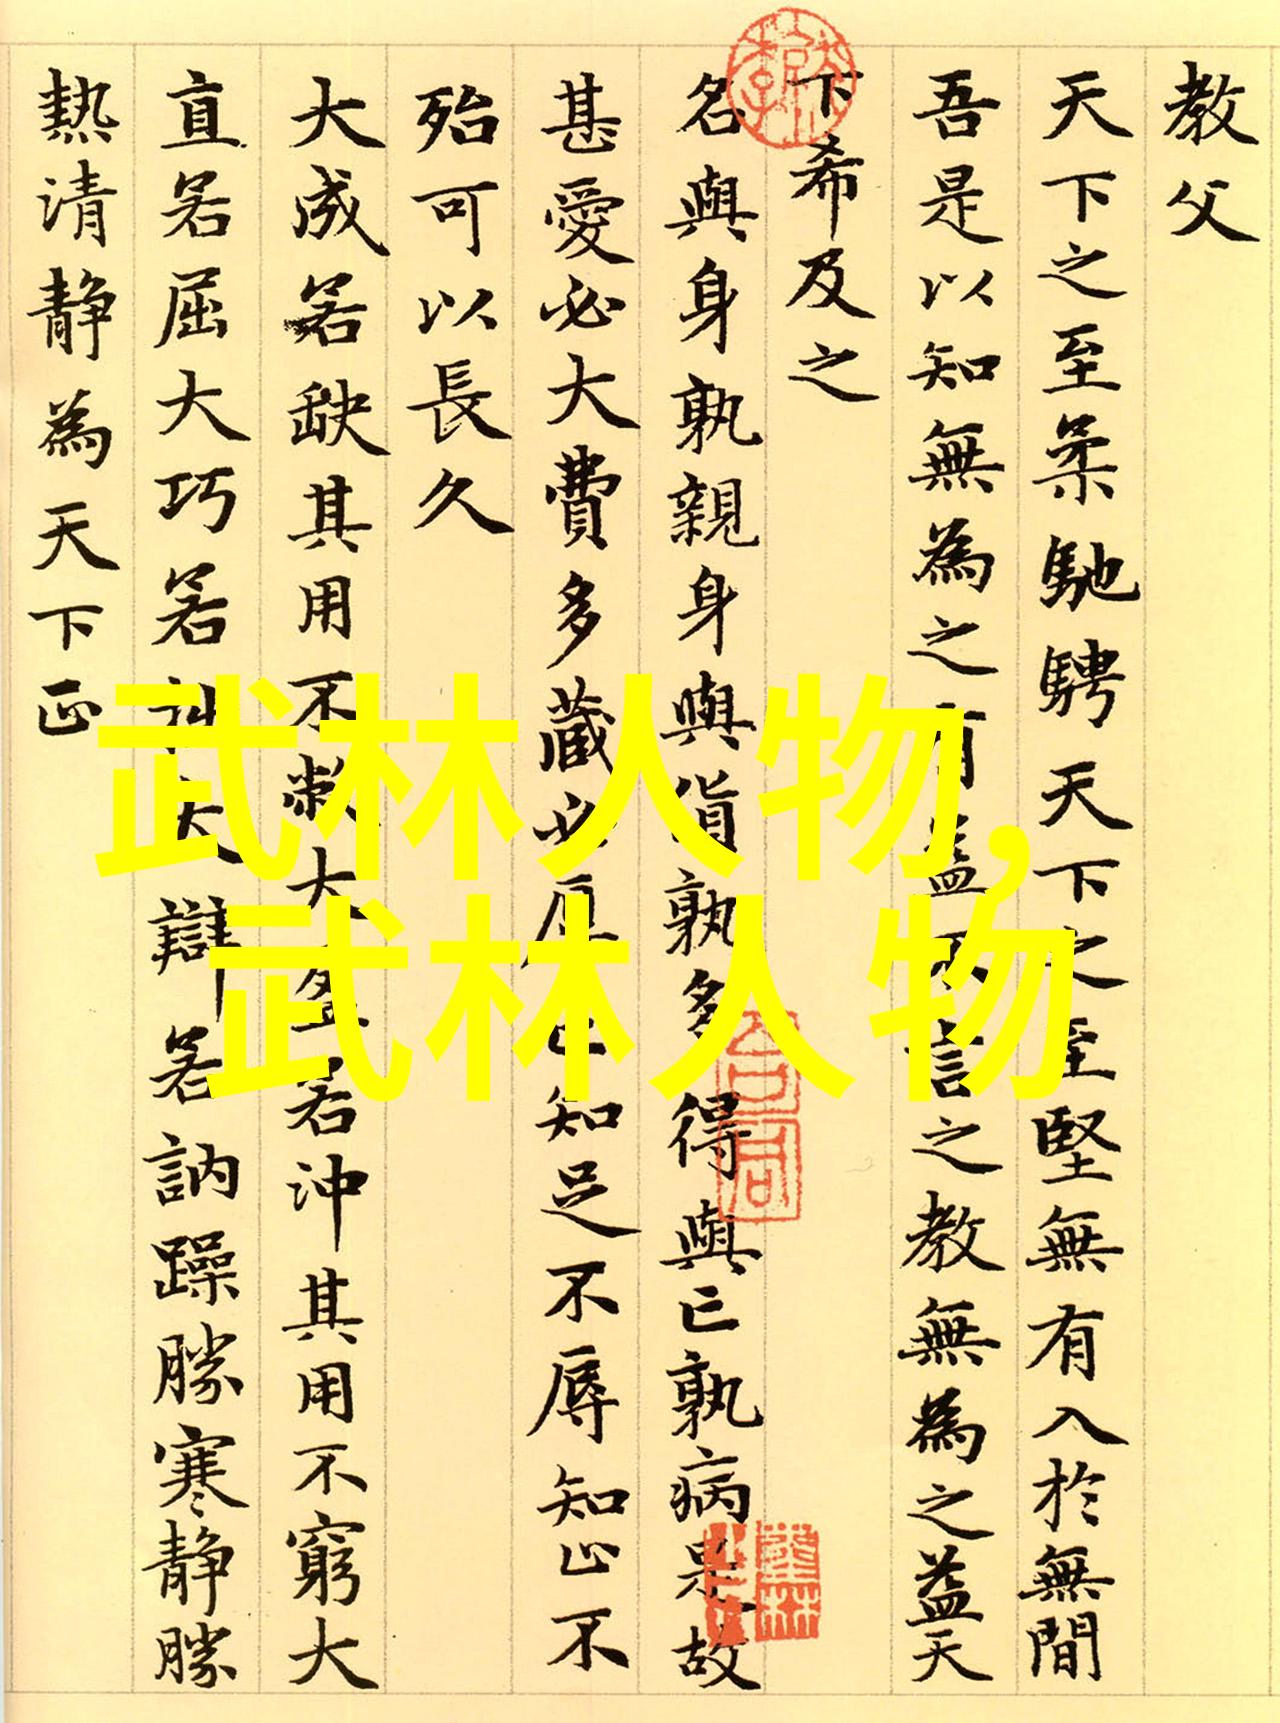 教父
天下之至柔馳騁天下之至堅無有入於無間
吾是以知無為之有益不言之教無為之益天
下希及之
名與身孰親身與貨孰多得與亡孰病是故
甚愛必大費多藏必厚亡知足不辱知止不
殆可以長久
大成若缺其用不敝大盈若沖其用不窮大
直若屈大巧若大辯若訥躁勝寒静勝
熱清静為天下正
武林人物,
武林人物